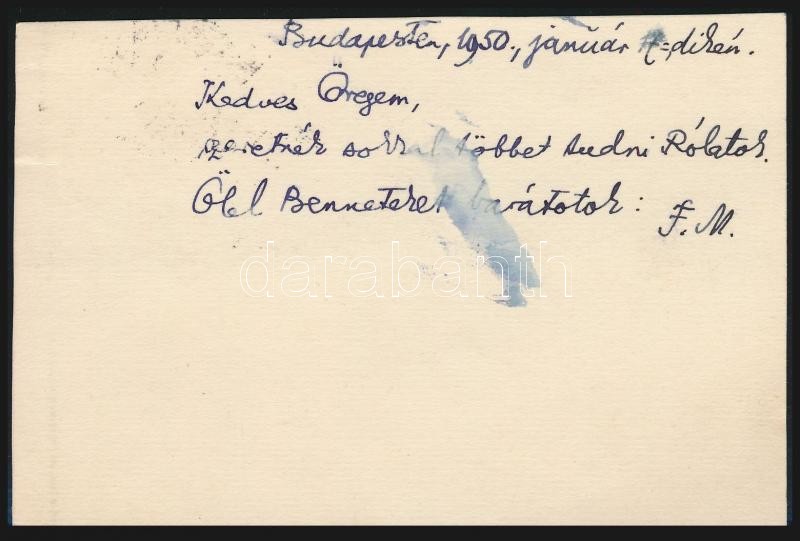 Budapesten, 1950., január =dikén.
Kedves Öregem,
szeretnék sokkal többet tudni Rólatok.
Ölel Benneteket barátotok:
F. M.
darabanth